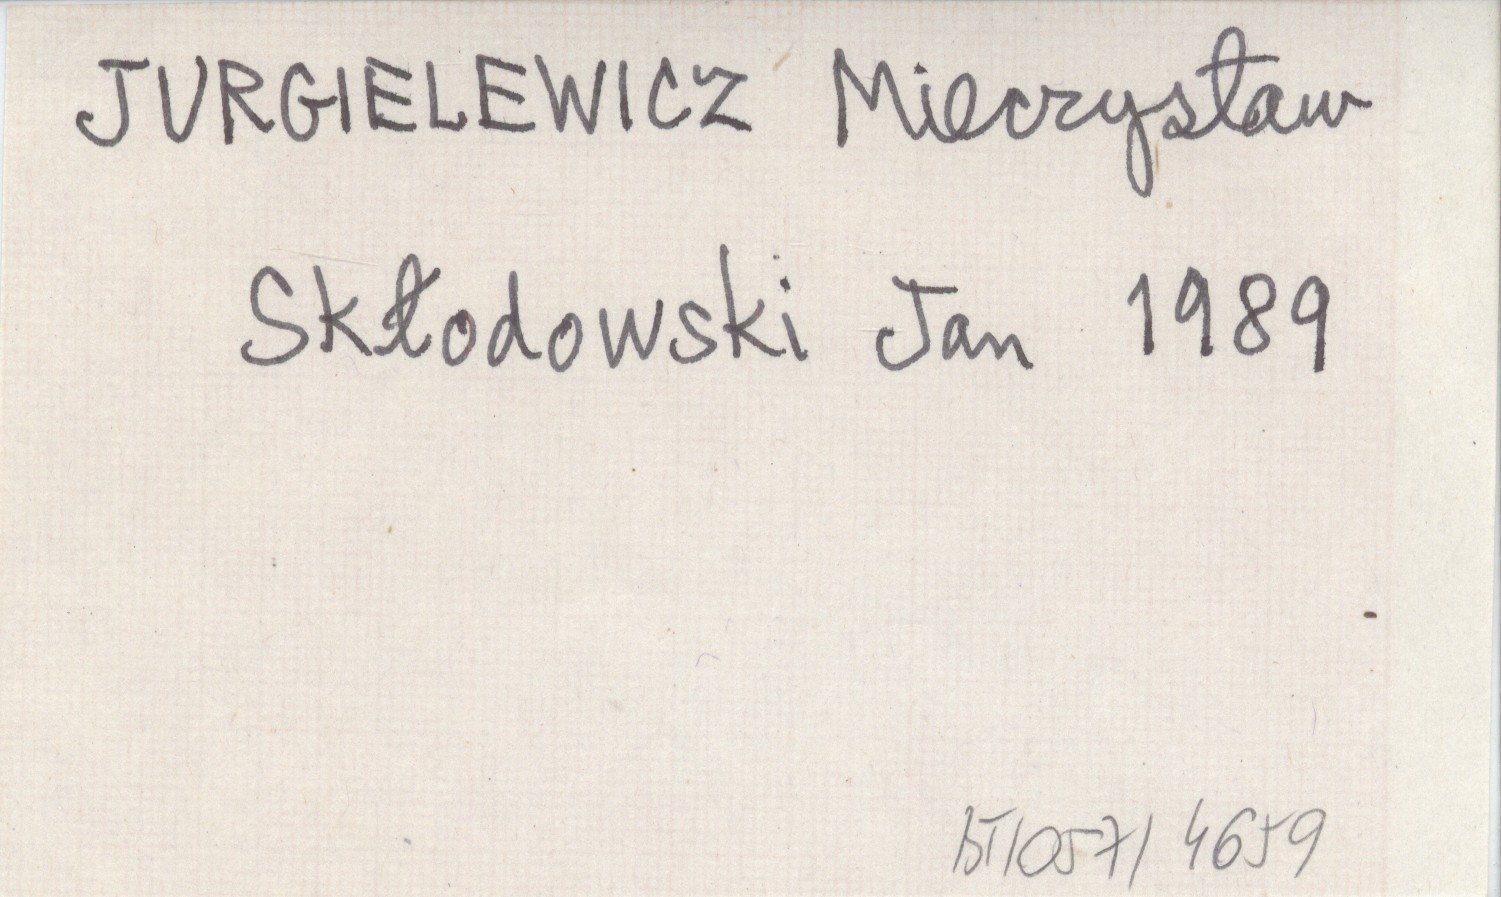 JURGIELEWICZ Mieczysław
Skłodowski Jan 1989
BT/057/ 4659